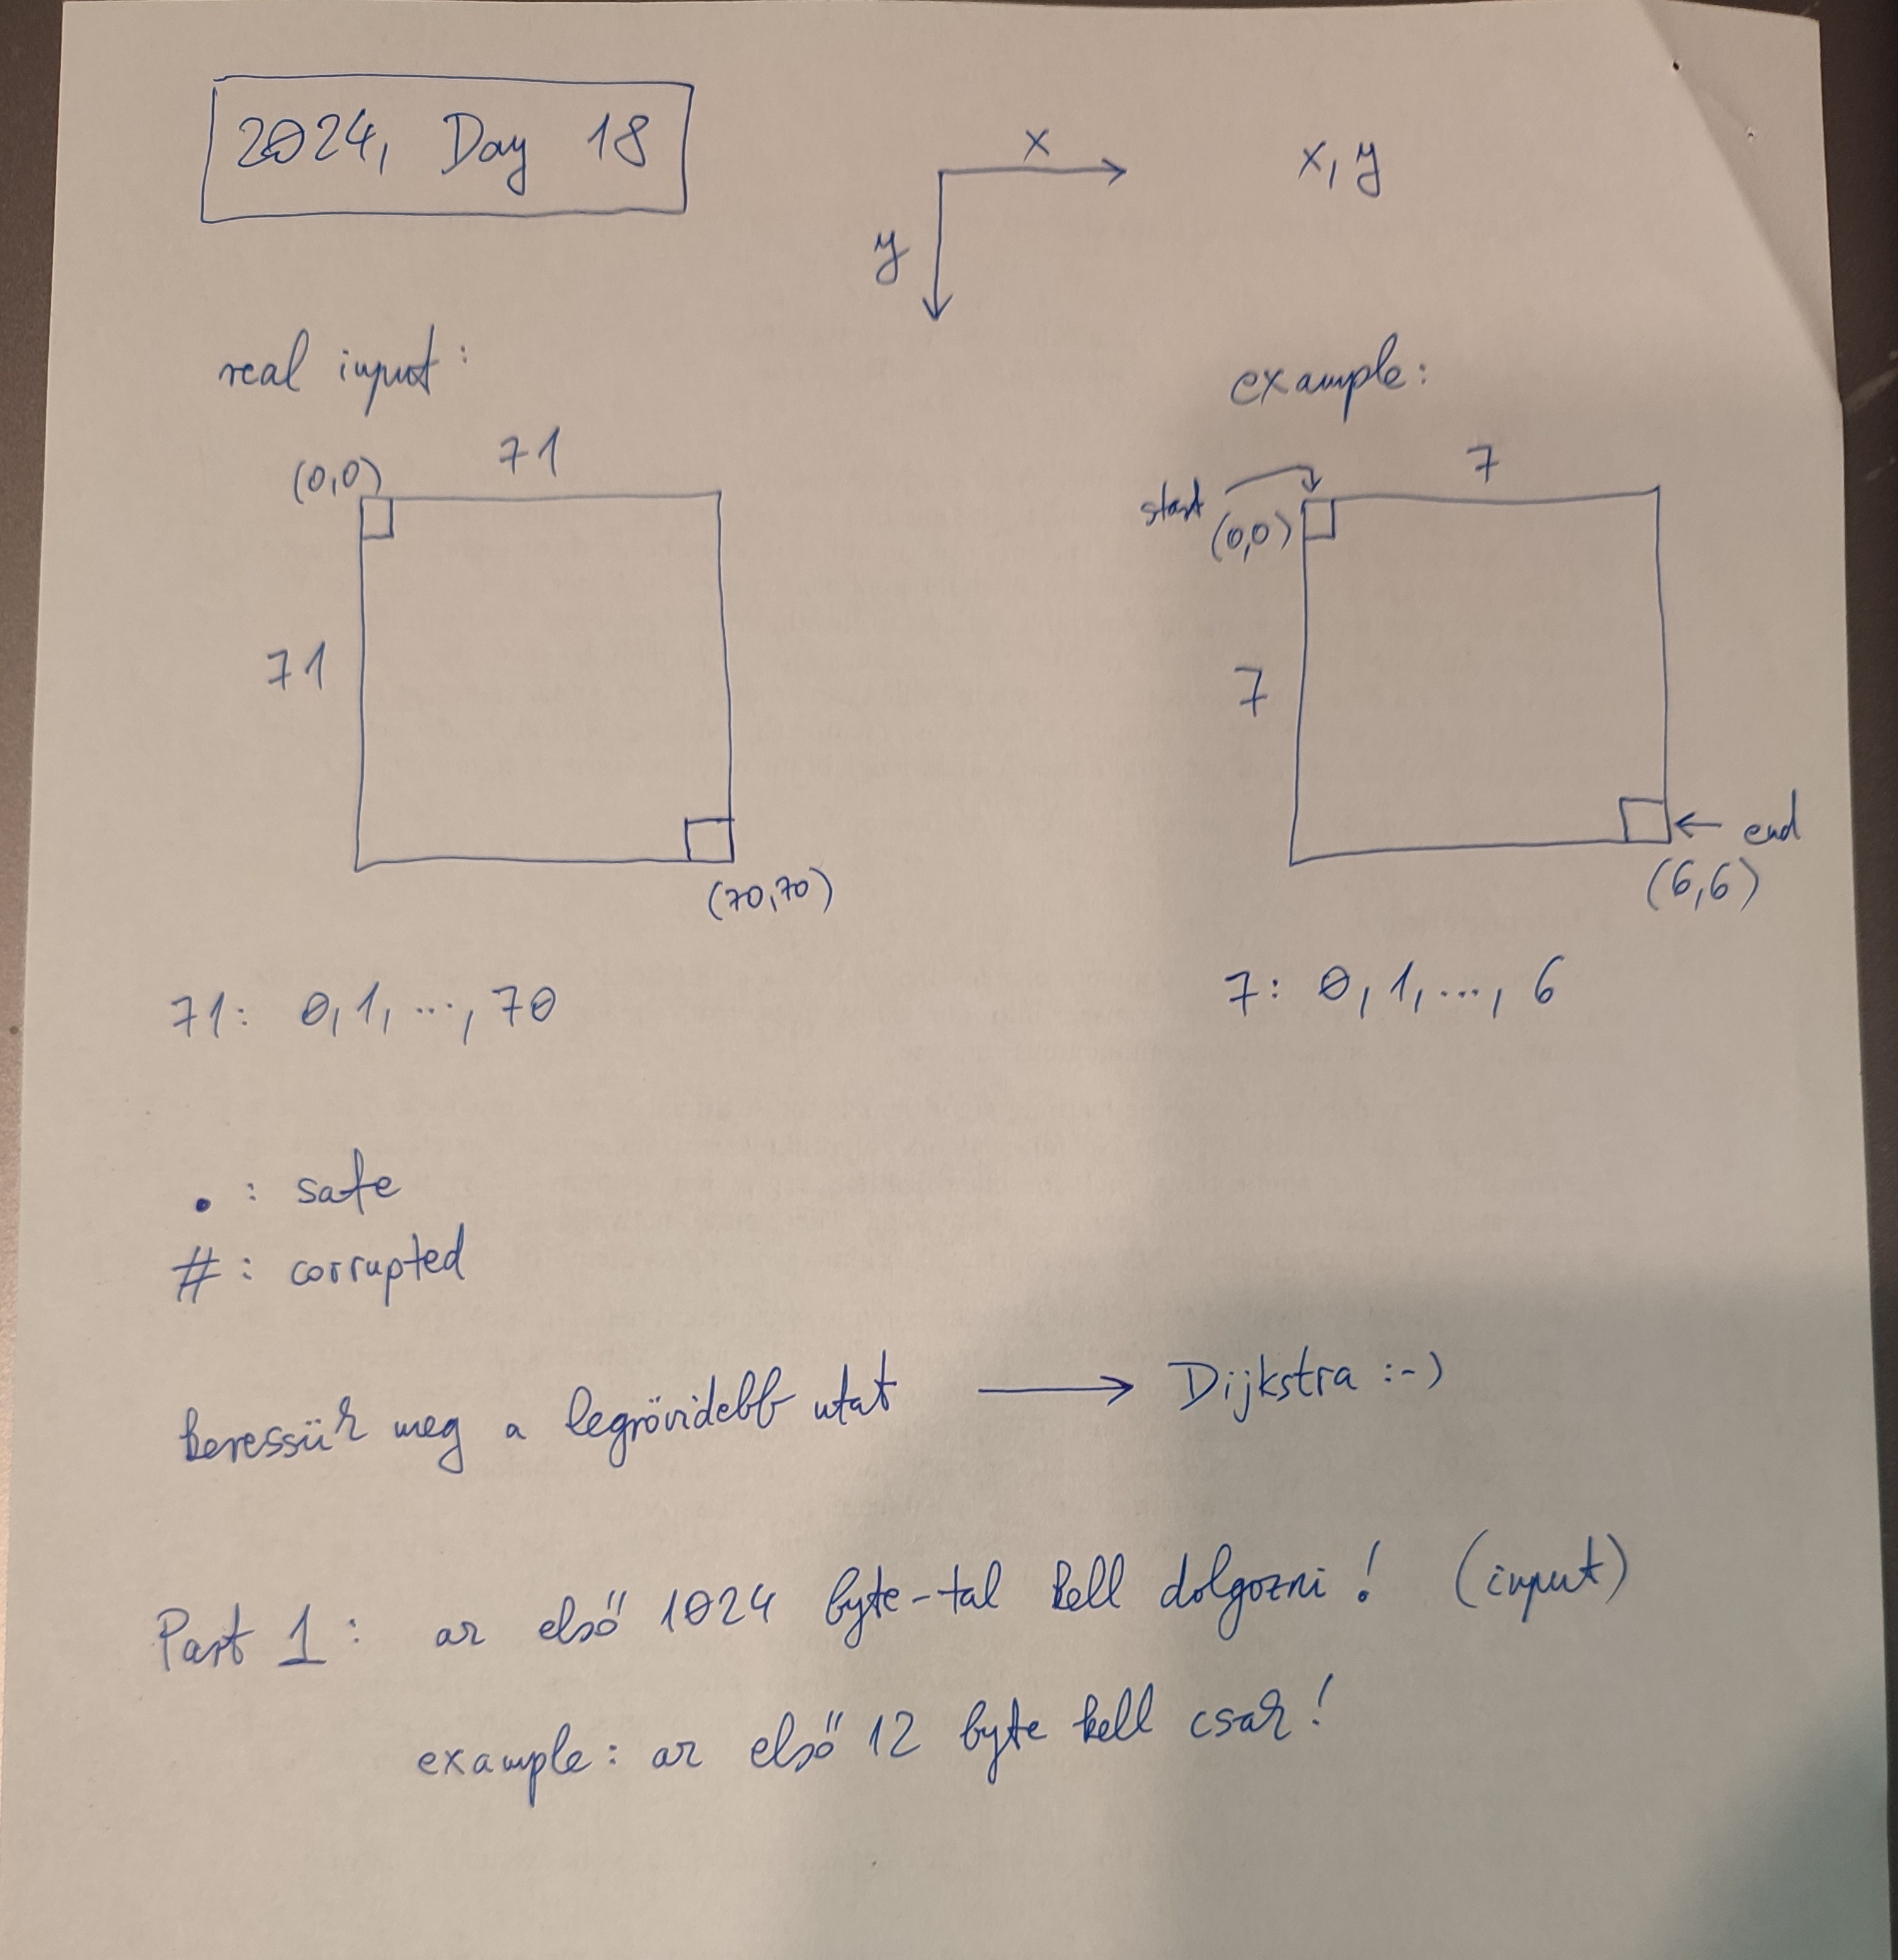 2024, Day 18
x
x, y
y
real input:
example:
(0,0)
71
start
(0,0)
7
71
7
end
(70,70)
(6,6)
71: 0, 1, ..., 70
7: 0, 1, ..., 6
. : safe
# : corrupted
keressük meg a legrövidebb utat → Dijkstra :-)
Part 1: az első 1024 byte-tal kell dolgozni! (input)
example: az első 12 byte kell csak!